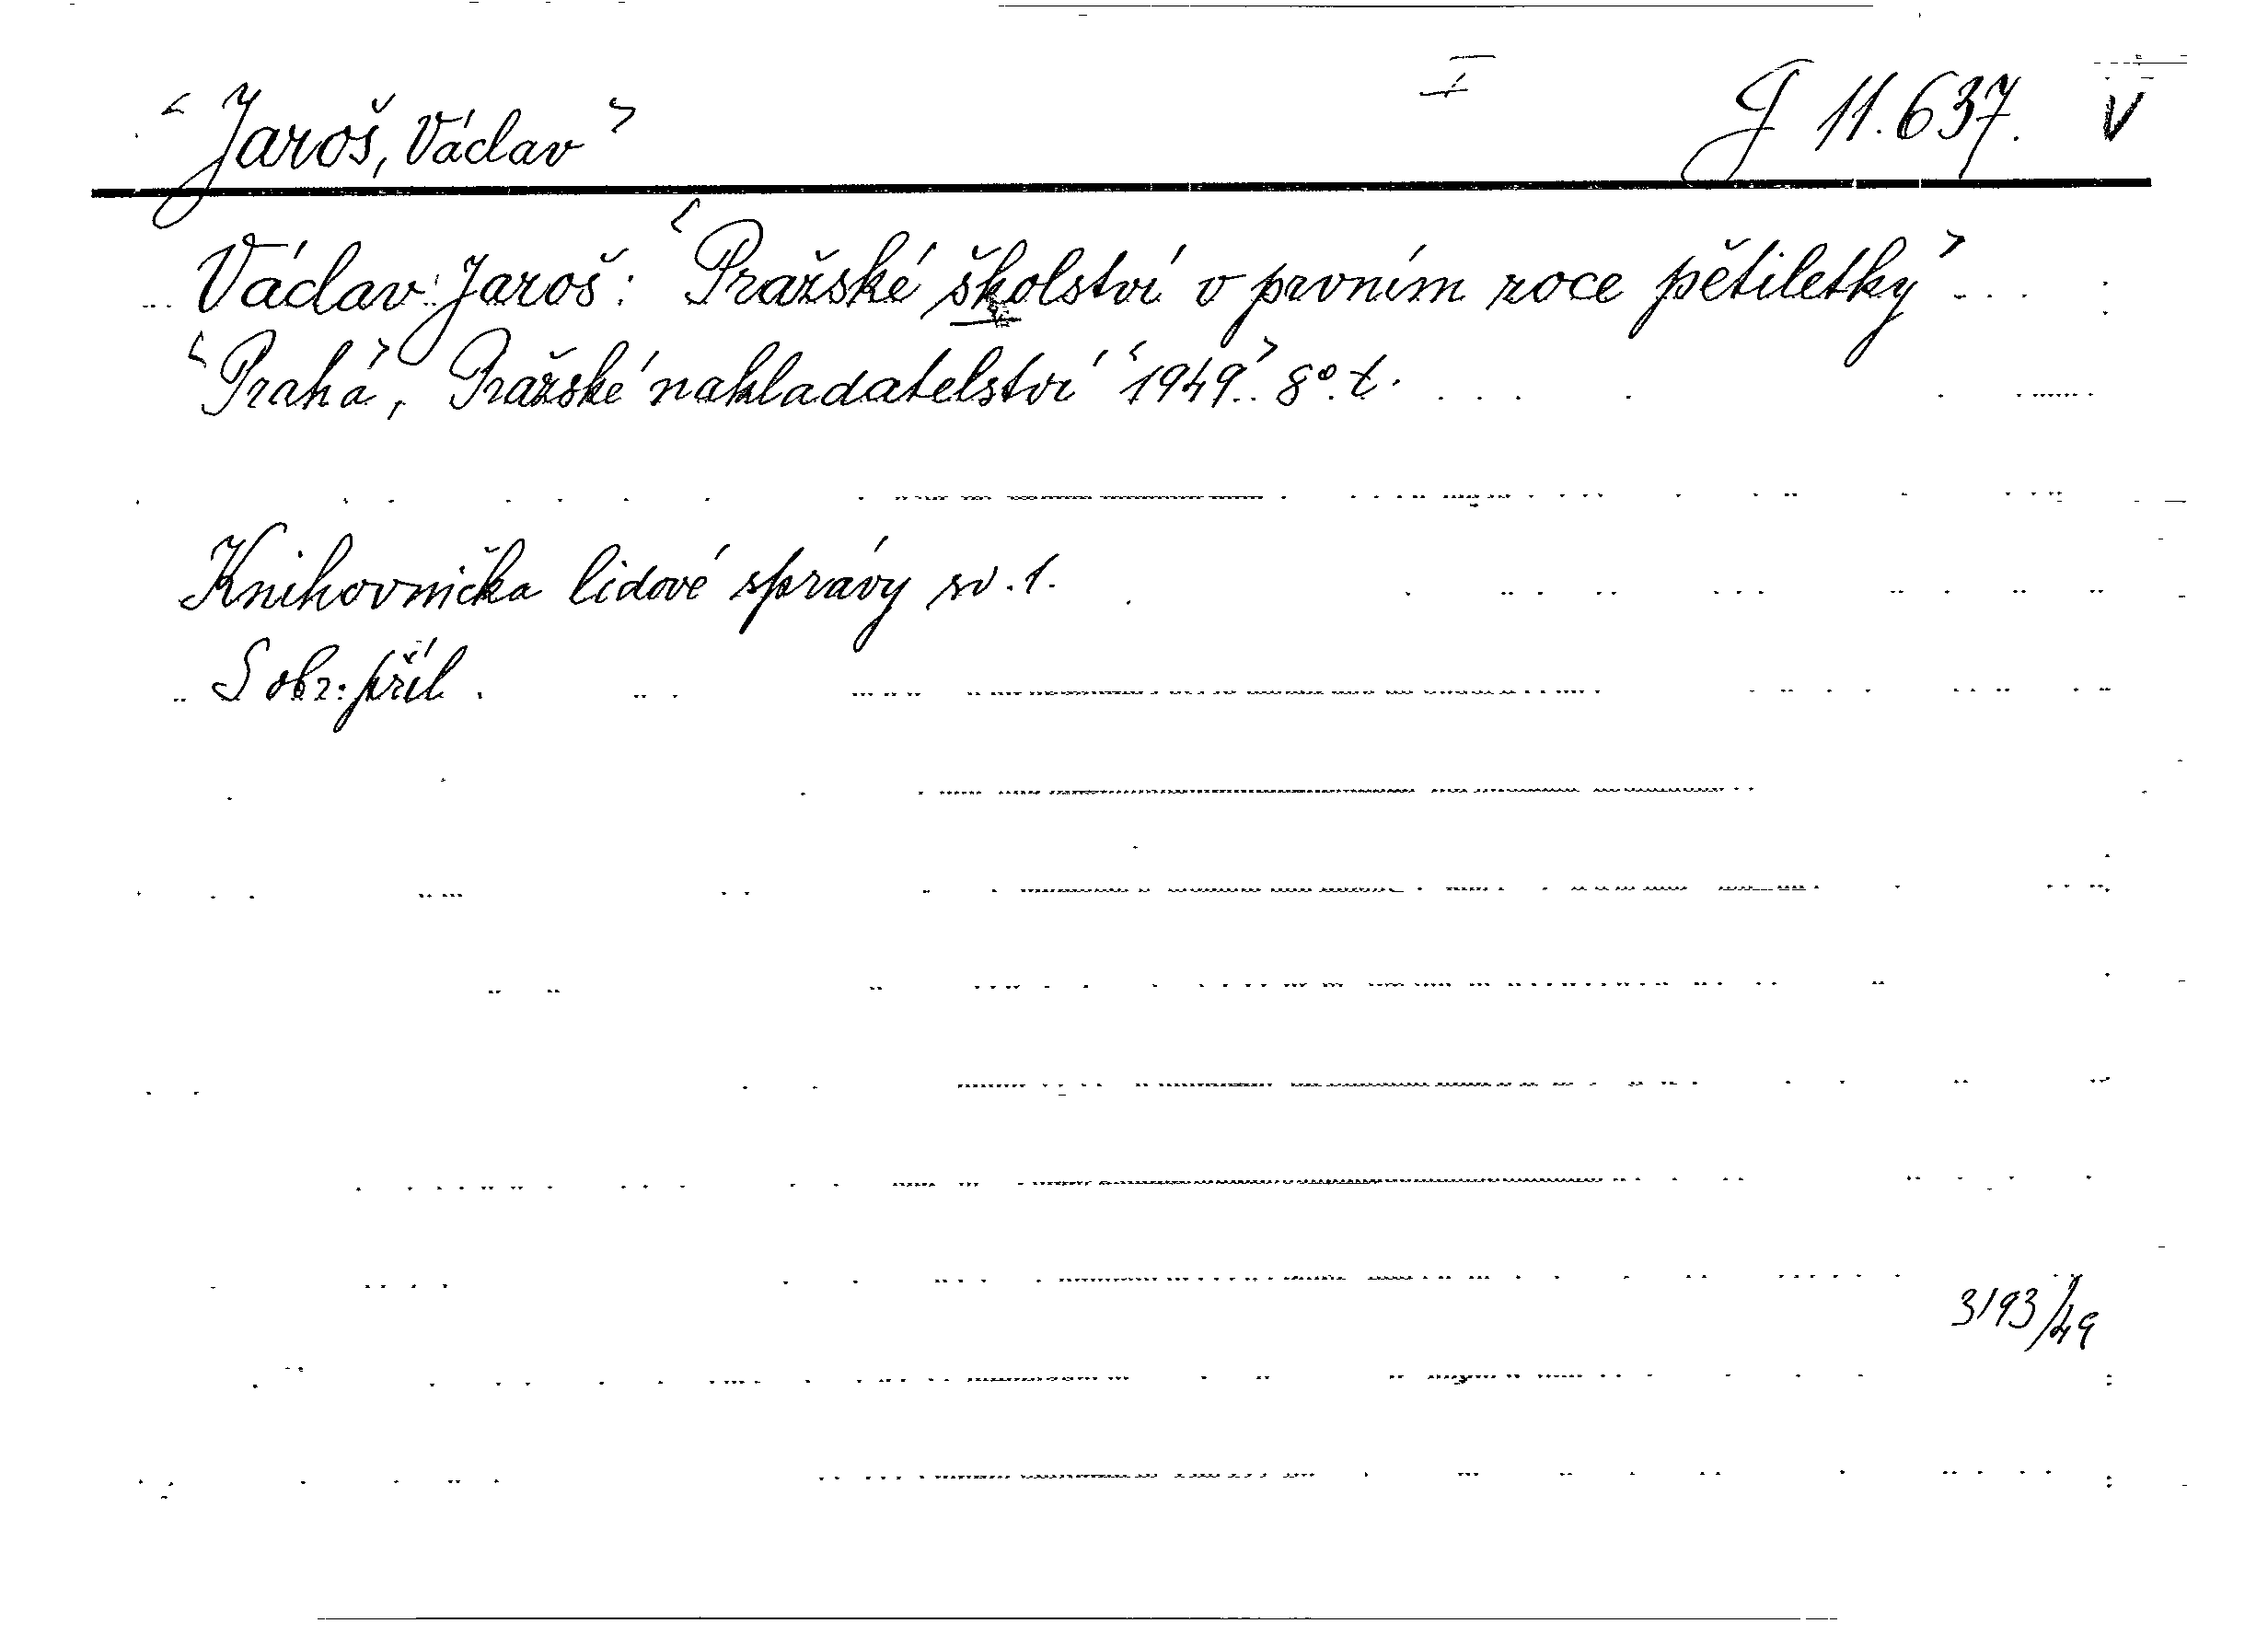 <Jaroš, Václav> I G 11.637. V
Václav Jaroš: <Pražské školství v prvním roce pětiletky>
<Praha>, Pražské nakladatelství <1949> 8° t.
Knihovnička lidové správy sv. 1.
S obr. příl.
3193/49